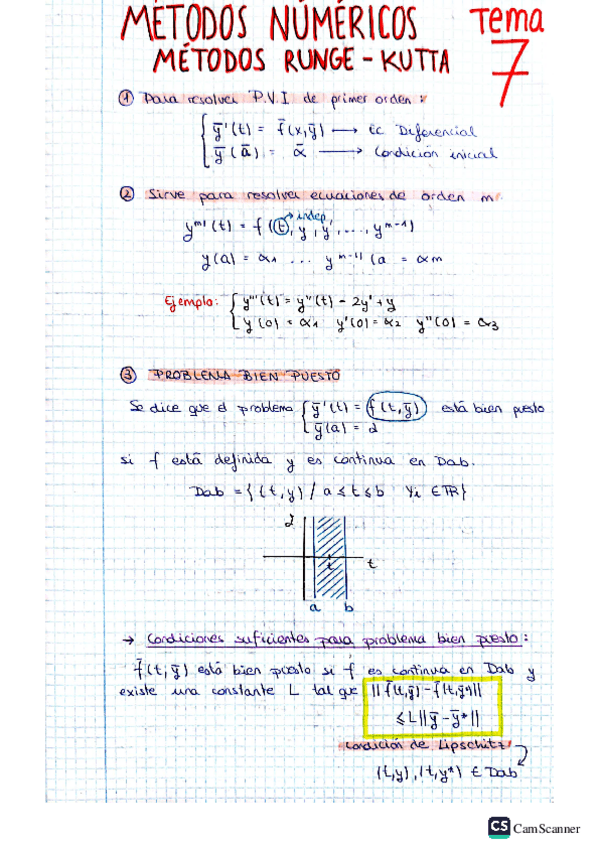 MÉTODOS NÚMÉRICOS Tema 7
MÉTODOS RUNGE - KUTTA
① Para resolver P.V.I de primer orden:
ȳ'(t) = f̄(x,ȳ) → Ec Diferencial
ȳ(ā) = ᾱ → Condición inicial
② Sirve para resolver ecuaciones de orden m.
y^m)(t) = f(t, y, y', ..., y^m-1)
→ indep
y(a) = α1 ... y^m-1)(a = αm
Ejemplo: y'''(t) = y''(t) - 2y' + y
y(0) = α1 y'(0) = α2 y''(0) = α3
③ PROBLEMA BIEN PUESTO
Se dice que el problema ȳ'(t) = f(t,ȳ) está bien puesto
ȳ(a) = α
si f está definida y es continua en Dab.
Dab = {(t,y) / a ≤ t ≤ b yi ∈ ℝ}
t
a b
→ Condiciones suficientes para problema bien puesto:
f̄(t,ȳ) está bien puesto si f es continua en Dab y
existe una constante L tal que ||f̄(t,ȳ) - f̄(t,ȳ*)||
≤ L||ȳ - ȳ*||
condición de Lipschitz
(t,y), (t,y*) ∈ Dab
CS CamScanner